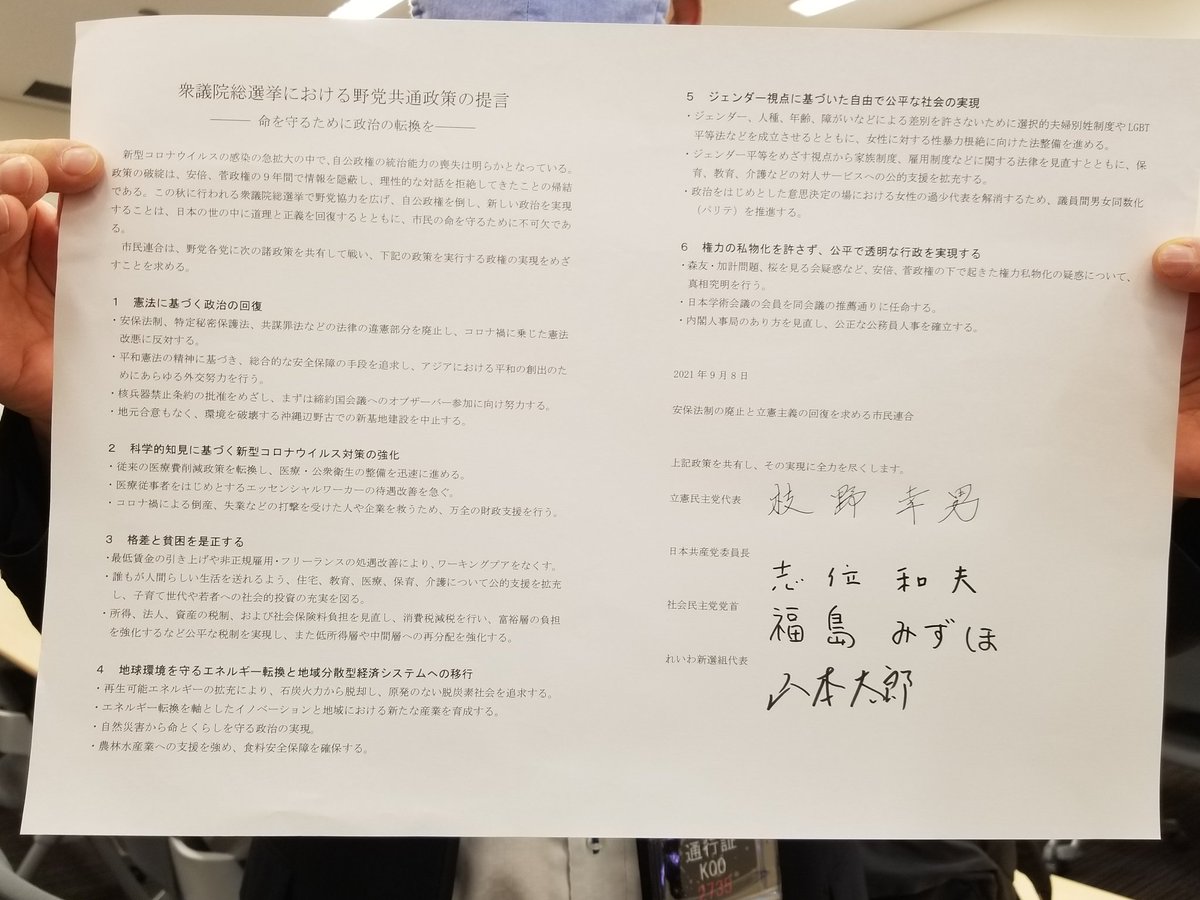 衆議院総選挙における野党共通政策の提言
――― 命を守るために政治の転換を―――
新型コロナウイルスの感染の急拡大の中で、自公政権の統治能力の喪失は明らかとなっている。
政策の破綻は、安倍、菅政権の９年間で情報を隠蔽し、理性的な対話を拒絶してきたことの帰結
である。この秋に行われる衆議院総選挙で野党協力を広げ、自公政権を倒し、新しい政治を実現
することは、日本の世の中に道理と正義を回復するとともに、市民の命を守るために不可欠であ
る。
市民連合は、野党各党に次の諸政策を共有して戦い、下記の政策を実行する政権の実現をめざ
すことを求める。
１　憲法に基づく政治の回復
・安保法制、特定秘密保護法、共謀罪法などの法律の違憲部分を廃止し、コロナ禍に乗じた憲法
改悪に反対する。
・平和憲法の精神に基づき、総合的な安全保障の手段を追求し、アジアにおける平和の創出のた
めにあらゆる外交努力を行う。
・核兵器禁止条約の批准をめざし、まずは締約国会議へのオブザーバー参加に向け努力する。
・地元合意もなく、環境を破壊する沖縄辺野古での新基地建設を中止する。
２　科学的知見に基づく新型コロナウイルス対策の強化
・従来の医療費削減政策を転換し、医療・公衆衛生の整備を迅速に進める。
・医療従事者をはじめとするエッセンシャルワーカーの待遇改善を急ぐ。
・コロナ禍による倒産、失業などの打撃を受けた人や企業を救うため、万全の財政支援を行う。
３　格差と貧困を是正する
・最低賃金の引き上げや非正規雇用・フリーランスの処遇改善により、ワーキングプアをなくす。
・誰もが人間らしい生活を送れるよう、住宅、教育、医療、保育、介護について公的支援を拡充
し、子育て世代や若者への社会的投資の充実を図る。
・所得、法人、資産の税制、および社会保険料負担を見直し、消費税減税を行い、富裕層の負担
を強化するなど公平な税制を実現し、また低所得層や中間層への再分配を強化する。
４　地球環境を守るエネルギー転換と地域分散型経済システムへの移行
・再生可能エネルギーの拡充により、石炭火力から脱却し、原発のない脱炭素社会を追求する。
・エネルギー転換を軸としたイノベーションと地域における新たな産業を育成する。
・自然災害から命とくらしを守る政治の実現。
・農林水産業への支援を強め、食料安全保障を確保する。
５　ジェンダー視点に基づいた自由で公平な社会の実現
・ジェンダー、人種、年齢、障がいなどによる差別を許さないために選択的夫婦別姓制度やLGBT
平等法などを成立させるとともに、女性に対する性暴力根絶に向けた法整備を進める。
・ジェンダー平等をめざす視点から家族制度、雇用制度などに関する法律を見直すとともに、保
育、教育、介護などの対人サービスへの公的支援を拡充する。
・政治をはじめとした意思決定の場における女性の過少代表を解消するため、議員間男女同数化
（パリテ）を推進する。
６　権力の私物化を許さず、公平で透明な行政を実現する
・森友・加計問題、桜を見る会疑惑など、安倍、菅政権の下で起きた権力私物化の疑惑について、
真相究明を行う。
・日本学術会議の会員を同会議の推薦通りに任命する。
・内閣人事局のあり方を見直し、公正な公務員人事を確立する。
2021年９月８日
安保法制の廃止と立憲主義の回復を求める市民連合
上記政策を共有し、その実現に全力を尽くします。
立憲民主党代表　枝野幸男
日本共産党委員長　志位和夫
社会民主党党首　福島みずほ
れいわ新選組代表　山本太郎
通行証
KOO
1738